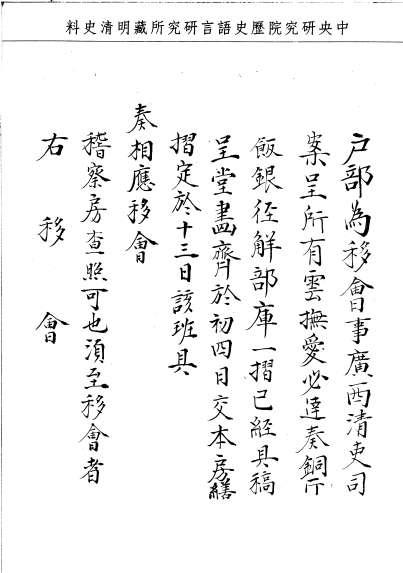 中央研究院歷史語言研究所藏明清史料
戶部為移會事廣西清吏司
案呈所有雲撫愛必達奏銅斤
飯銀徑解部庫一摺已經具稿
呈堂畫齊於初四日交本房繕
摺定於十三日該班具
奏相應移會
稽察房查照可也須至移會者
右移會